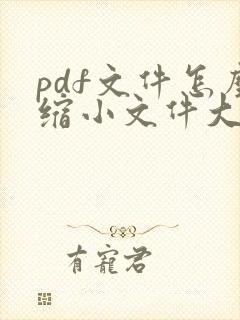 pdf文件怎
缩小文件大
有宠君